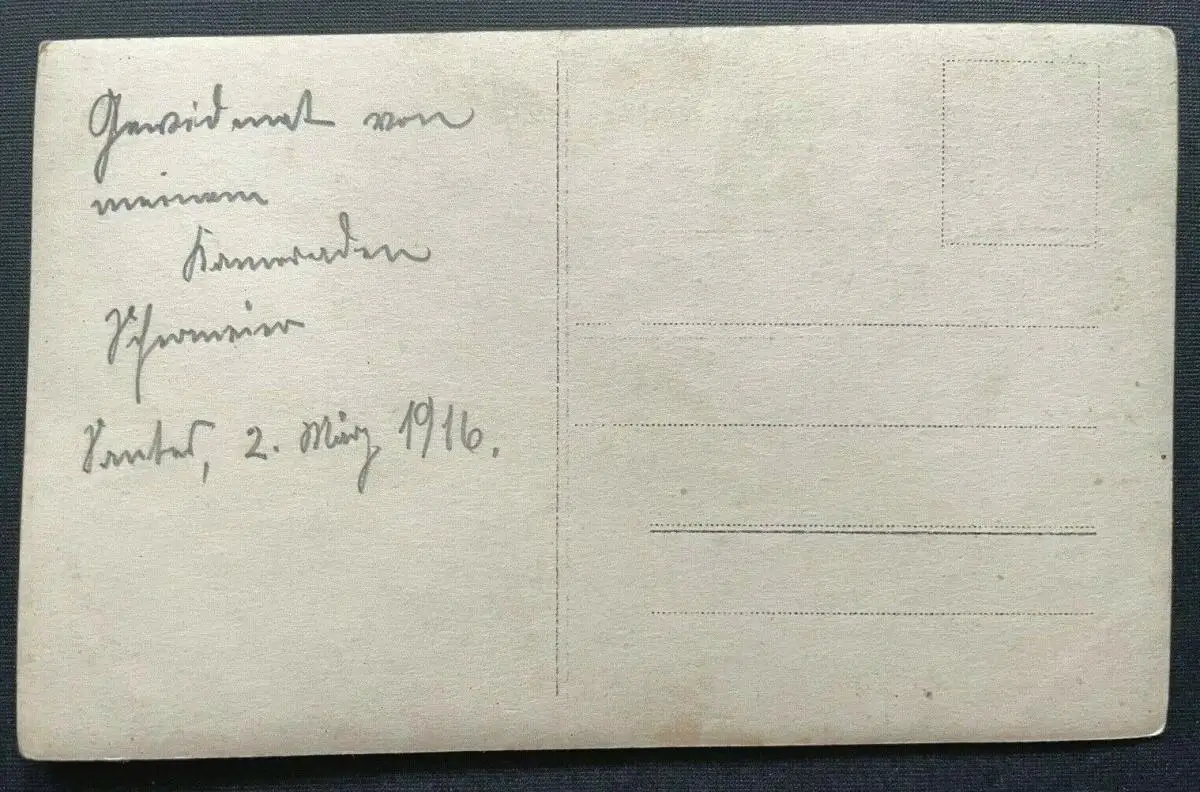 Gewidmet von
meinem
Kameraden
Schermeier
2. März 1916.